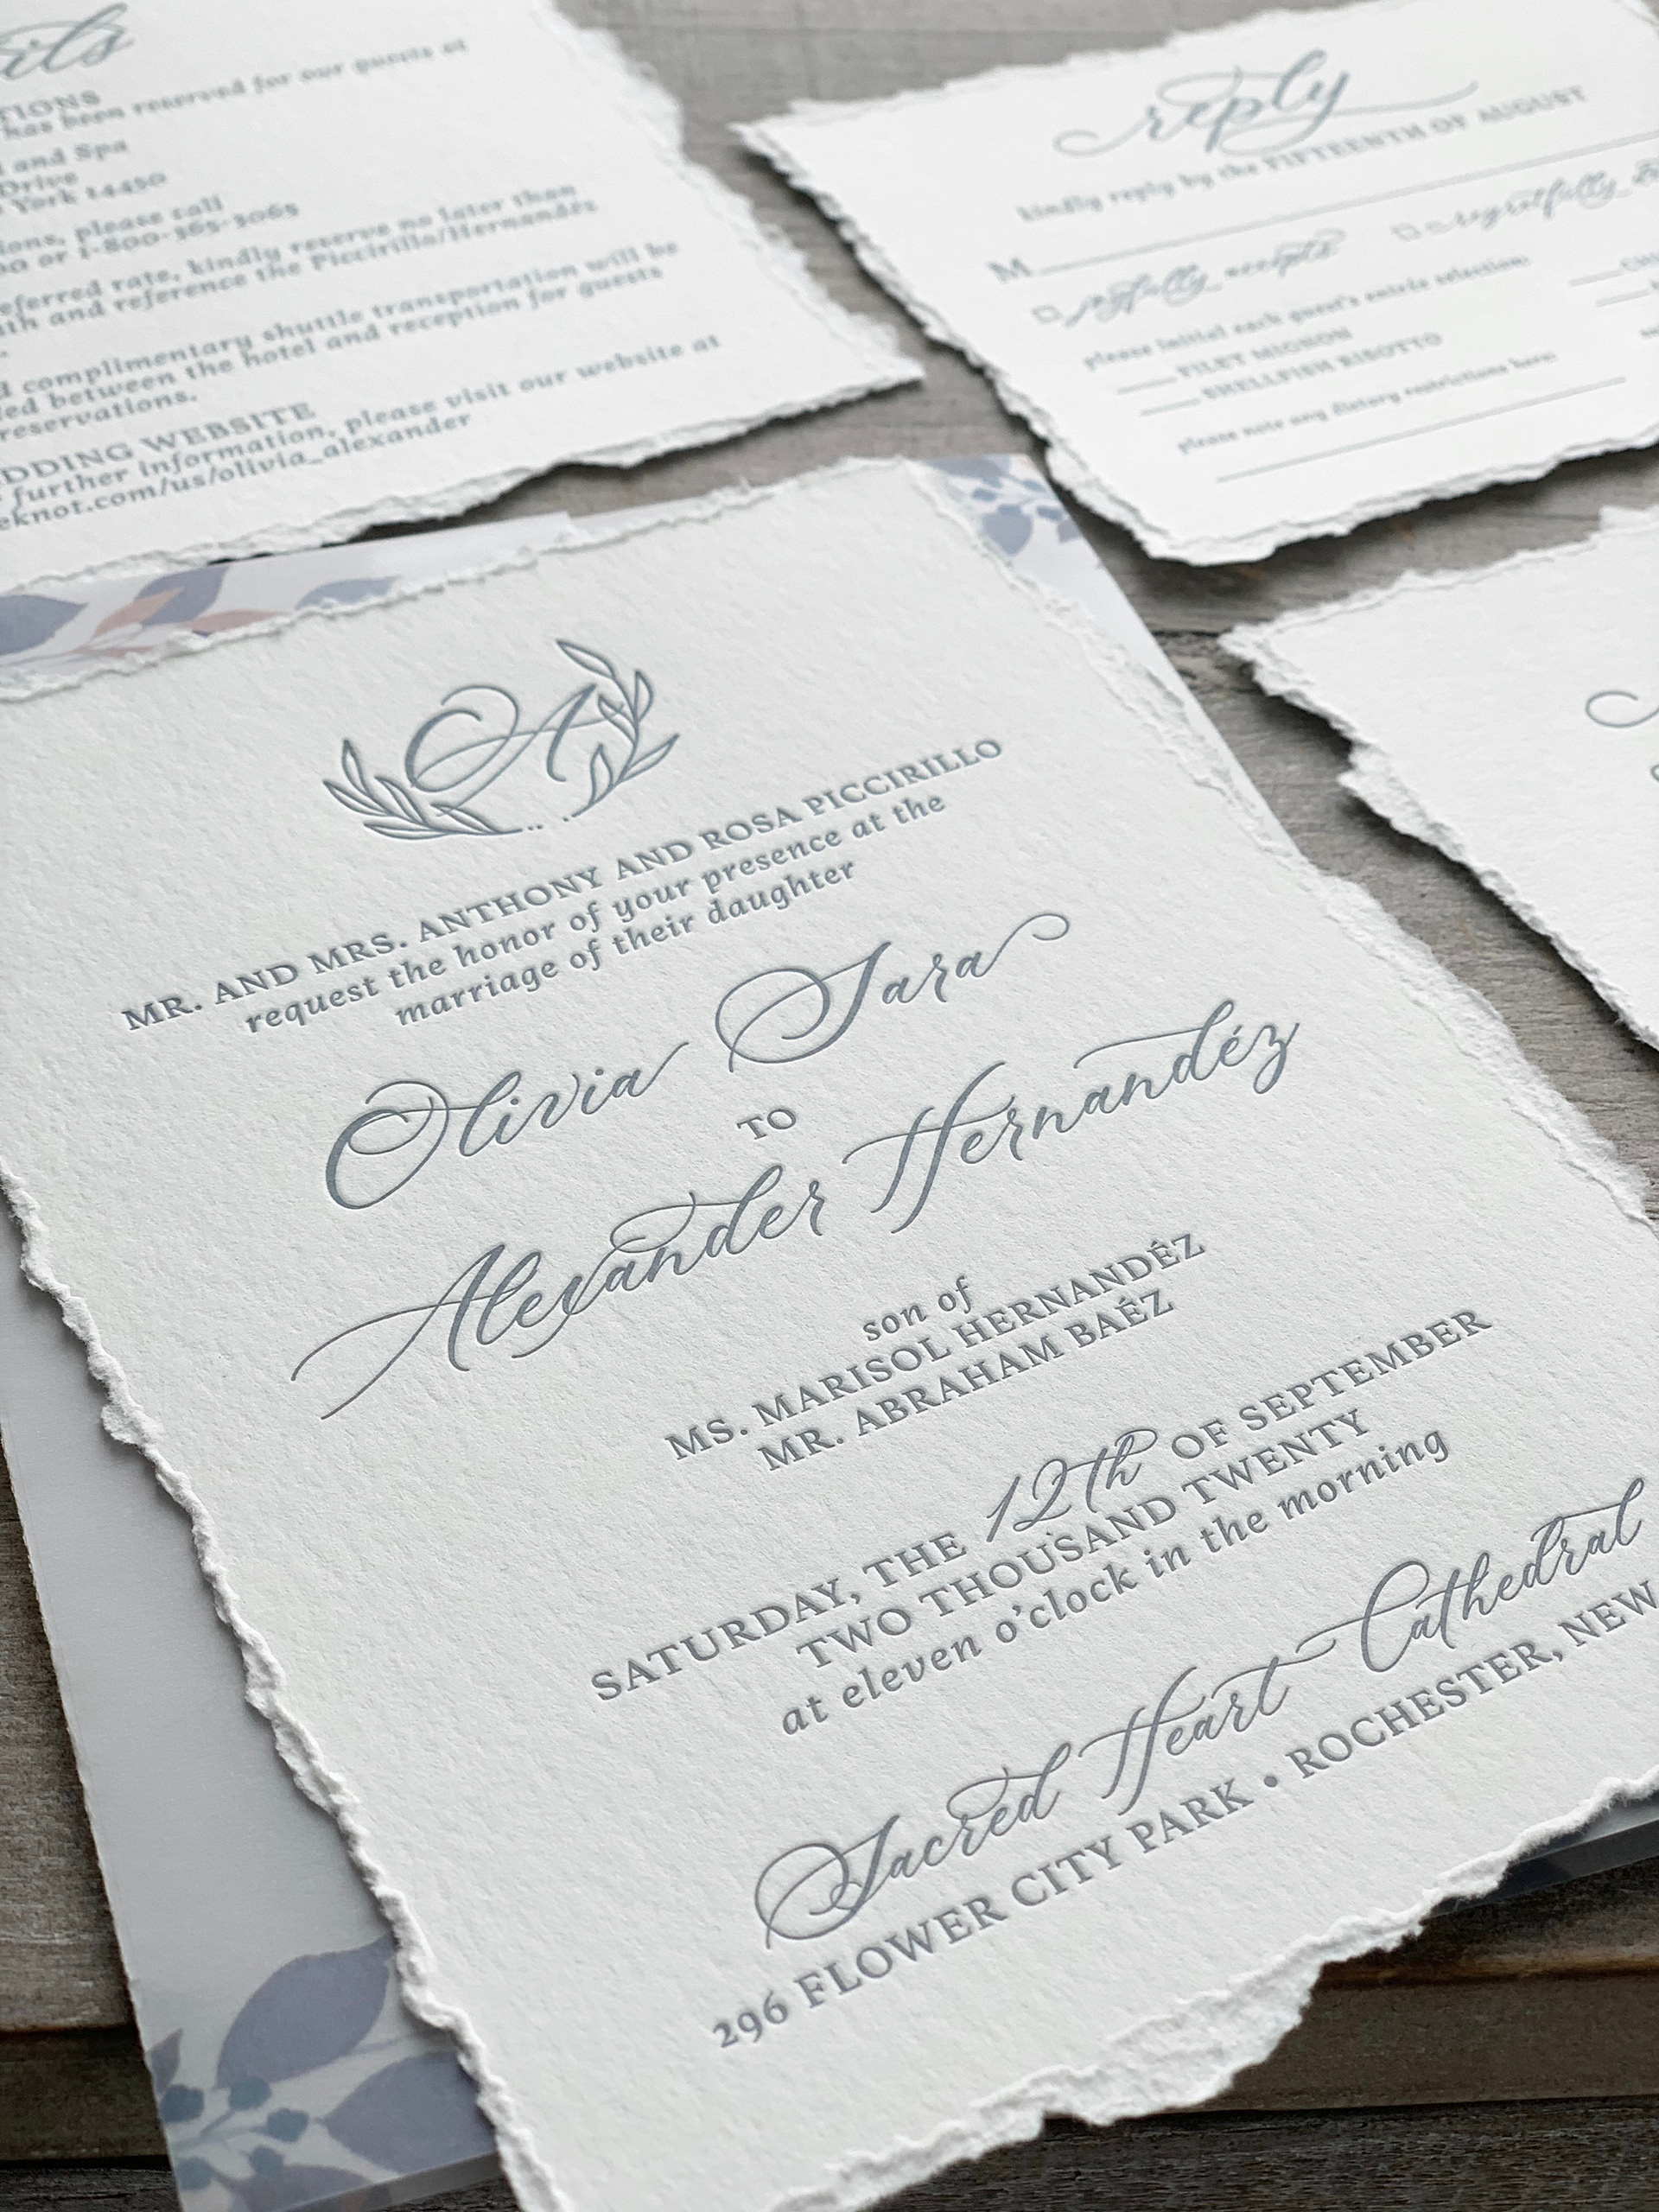 TIONS
has been reserved for our guests at
and Spa
Drive
York 14450
ions, please call
or 1-800-365-3065
eferred rate, kindly reserve no later than
and reference the Piccirillo/Hernandéz
complimentary shuttle transportation will be
ed between the hotel and reception for guests
reservations.
DDING WEBSITE
further information, please visit our website at
eknot.com/us/olivia_alexander
reply
kindly reply by the FIFTEENTH OF AUGUST
M
joyfully accepts regretfully
please initial each guest's entrée selection:
FILET MIGNON
SHELLFISH RISOTTO
please note any dietary restrictions here:
OA
MR. AND MRS. ANTHONY AND ROSA PICCIRILLO
request the honor of your presence at the
marriage of their daughter
Olivia Sara
TO
Alexander Hernandéz
son of
MS. MARISOL HERNANDÉZ
MR. ABRAHAM BAÉZ
SATURDAY, THE 12th OF SEPTEMBER
TWO THOUSAND TWENTY
at eleven o'clock in the morning
Sacred Heart Cathedral
296 FLOWER CITY PARK • ROCHESTER, NEW